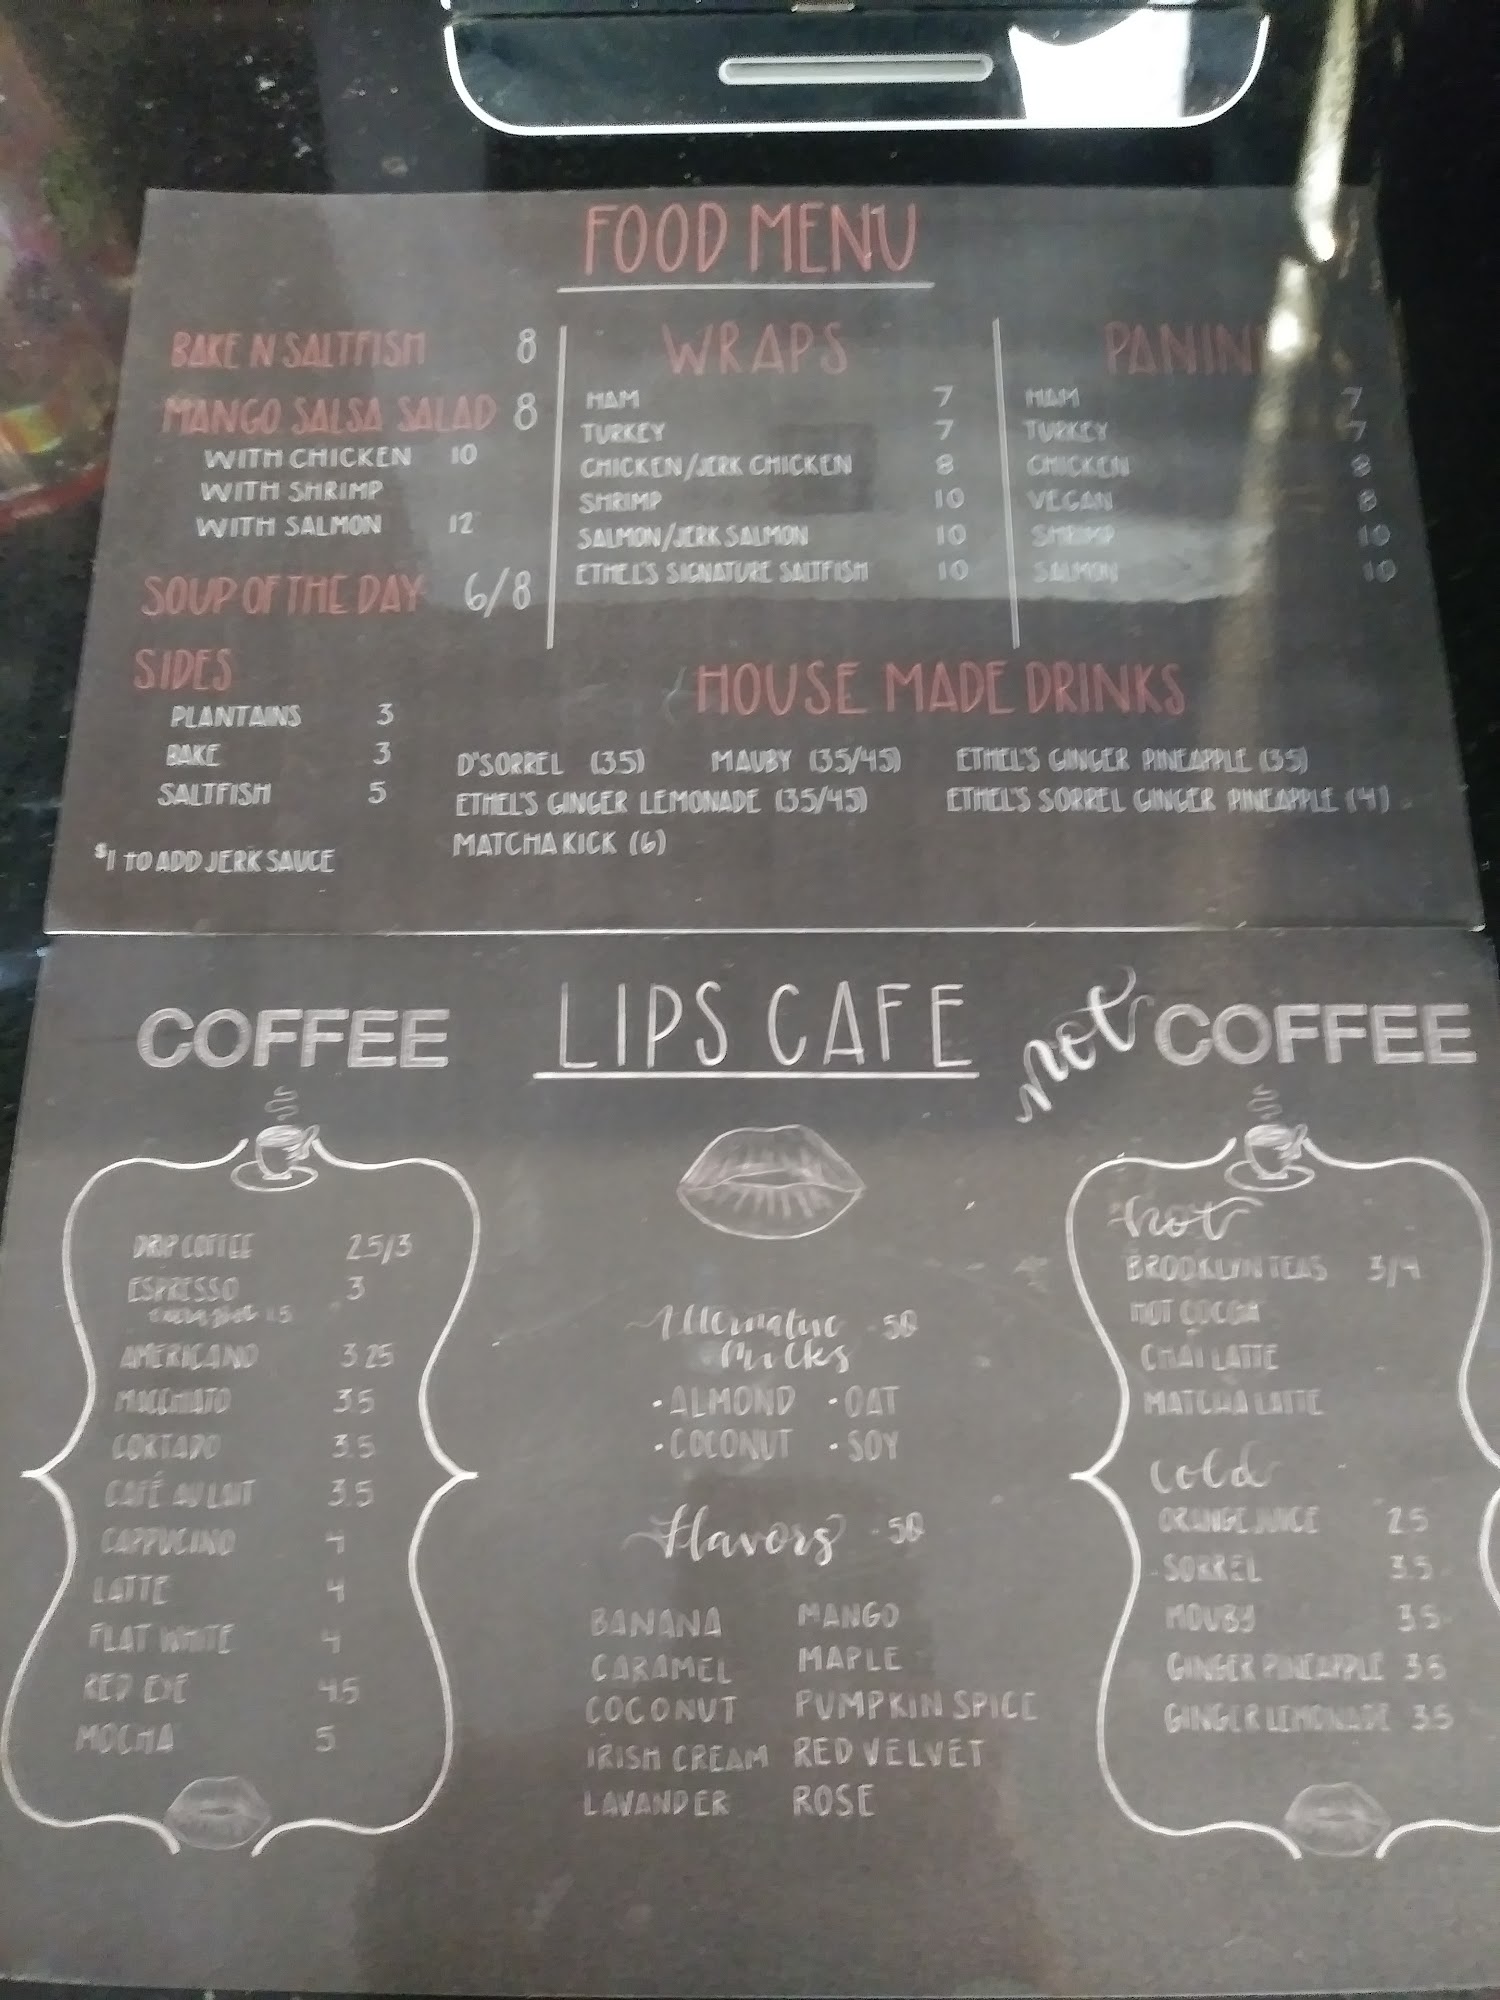 FOOD MENU
BAKE N SALTFISH 8
MANGO SALSA SALAD 8
WITH CHICKEN 10
WITH SHRIMP
WITH SALMON 12
SOUP OF THE DAY 6/8
SIDES
PLANTAINS 3
BAKE 3
SALTFISH 5
$1 TO ADD JERK SAUCE
WRAPS
HAM 7
TURKEY 7
CHICKEN/JERK CHICKEN 8
SHRIMP 10
SALMON/JERK SALMON 10
ETHEL'S SIGNATURE SALTFISH 10
PANINI
HAM 7
TURKEY 7
CHICKEN 8
VEGAN 8
SHRIMP 10
SALMON 10
HOUSE MADE DRINKS
D'SORREL (3.5) MAUBY (3.5/4.5) ETHEL'S GINGER PINEAPPLE (3.5)
ETHEL'S GINGER LEMONADE (3.5/4.5) ETHEL'S SORREL GINGER PINEAPPLE (4)
MATCHA KICK (6)
LIPS CAFE
COFFEE
DRIP COFFEE 2.5/3
ESPRESSO 3
extra shot 1.5
AMERICANO 3.25
MACCHIATO 3.5
CORTADO 3.5
CAFÉ AU LAIT 3.5
CAPPUCINO 4
LATTE 4
FLAT WHITE 4
RED EYE 4.5
MOCHA 5
Alternative .50
Milks
• ALMOND • OAT
• COCONUT • SOY
Flavors .50
BANANA MANGO
CARAMEL MAPLE
COCONUT PUMPKIN SPICE
IRISH CREAM RED VELVET
LAVANDER ROSE
not COFFEE
hot
BROOKLYN TEAS 3/4
HOT COCOA
CHAI LATTE
MATCHA LATTE
cold
ORANGE JUICE 2.5
SORREL 3.5
MOUBY 3.5
GINGER PINEAPPLE 3.5
GINGER LEMONADE 3.5